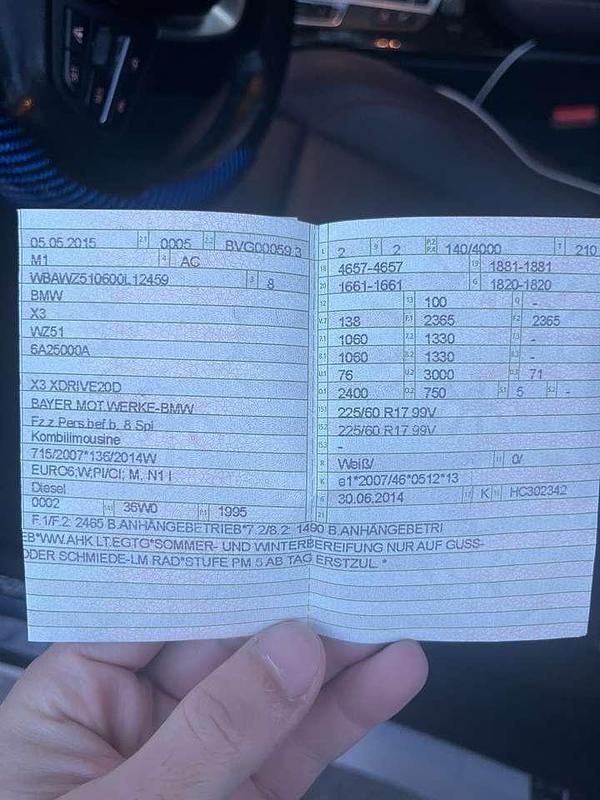 05.05.2015 2.1 0005 2.2 BVG00059 3
M1 4 AC
WBAWZ510600L12459 3 8
BMW
X3
WZ51
6A25000A
X3 XDRIVE20D
BAYER.MOT.WERKE-BMW
Fz.z.Pers.bef.b. 8 Spl.
Kombilimousine
715/2007*136/2014W
EURO6;W;PI/CI; M, N1 I
Diesel
0002 36W0 1995
L 2 9 2 P.2 P.4 140/4000 T 210
18 4657-4657 19 1881-1881
20 1661-1661 G 1820-1820
12 13 100 Q -
V.7 138 F.1 2365 F.2 2365
7.1 1060 7.2 1330 7.3 -
8.1 1060 8.2 1330 8.3 -
U.1 76 U.2 3000 U.3 71
O.1 2400 O.2 750 S.1 5 S.2 -
15.1 225/60 R17 99V
15.2 225/60 R17 99V
15.3 -
R Weiß/ 11 0/
K e1*2007/46*0512*13
6 30.06.2014 17 K 16 HC302342
21
F.1/F.2: 2465 B.ANHÄNGEBETRIEB*7.2/8.2: 1490 B.ANHÄNGEBETRI
EB*WW.AHK LT.EGTG*SOMMER- UND WINTERBEREIFUNG NUR AUF GUSS-
ODER SCHMIEDE-LM RAD*STUFE PM 5 AB TAG ERSTZUL.*